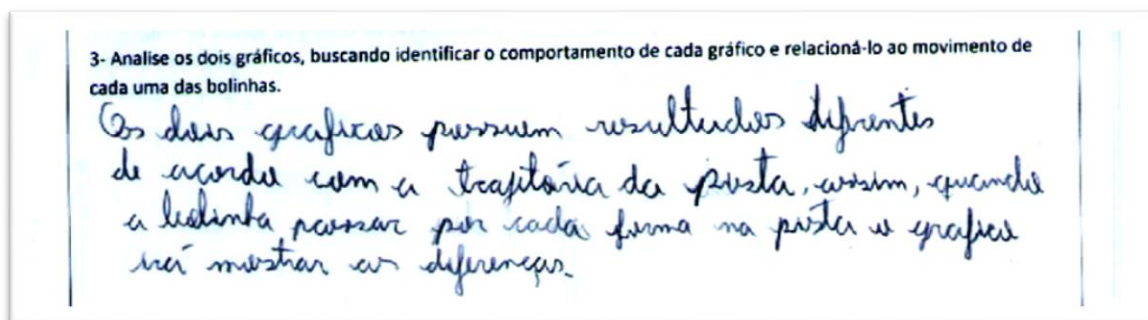 3- Analise os dois gráficos, buscando identificar o comportamento de cada gráfico e relacioná-lo ao movimento de
cada uma das bolinhas.
Os dois graficos possuem resultados difrentes
de acordo com a trajitória da pista, assim, quando
a bolinha passar por cada forma na pista o grafico
irá mostrar as diferenças.